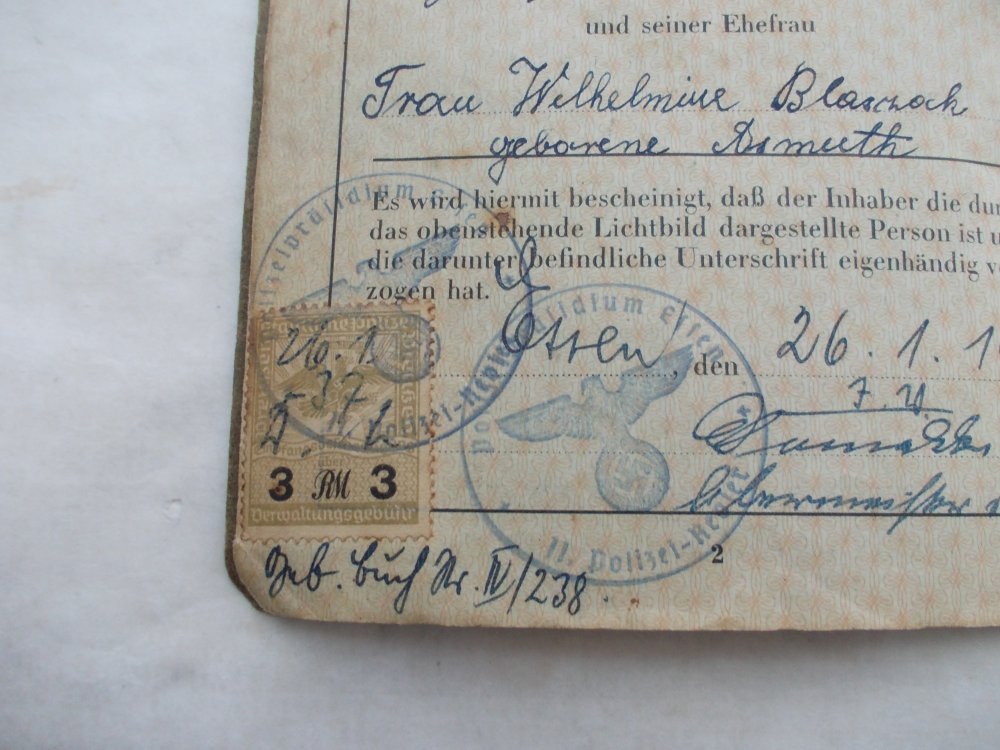 und seiner Ehefrau
Frau Wilhelmine Blaszcok
geborene Asmuth
Es wird hiermit bescheinigt, daß der Inhaber die du
das obenstehende Lichtbild dargestellte Person ist u
die darunter befindliche Unterschrift eigenhändig v
zogen hat.
Polizeipräsidium Essen
Essen, den 26.1.1
Polizeipräsidium Essen
11. Polizei-Revier
Polizei-Revier
26.1
37
3 RM 3
Verwaltungsgebühr
Obermeister
2
Geb. Buch Nr. IV/238.